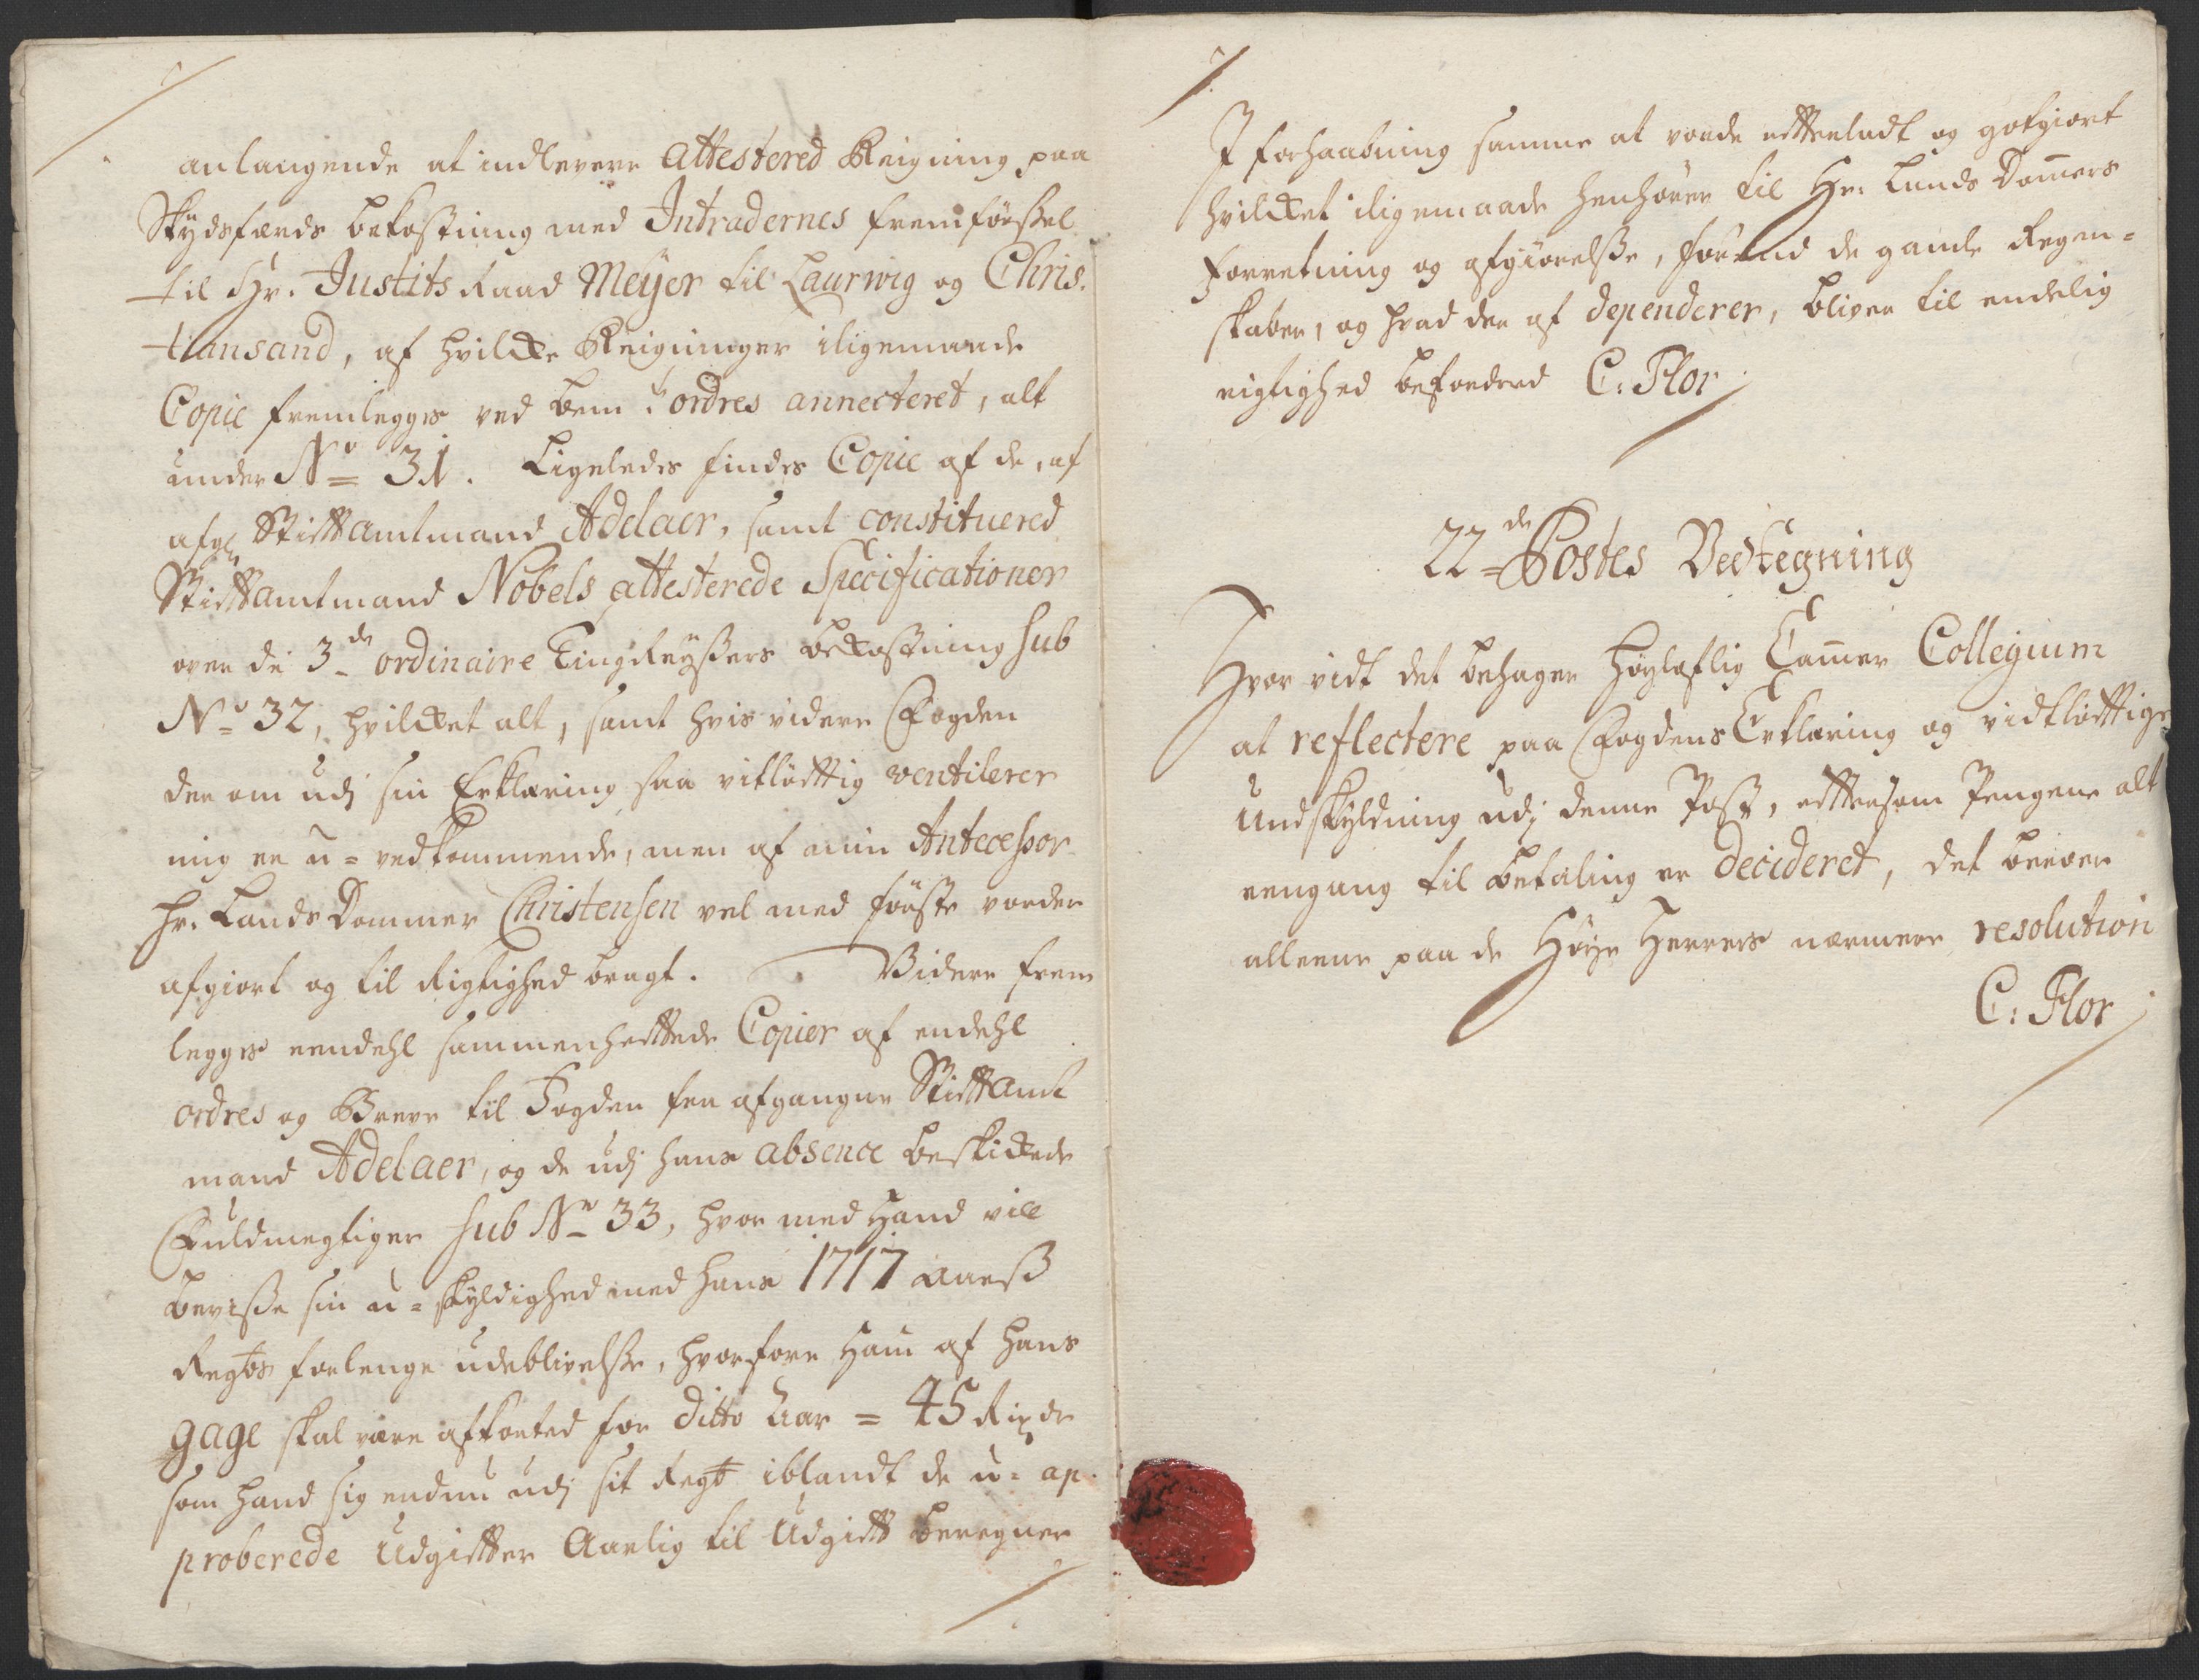 anlangende at indlevere attestered Reigning paa
Skydsfærds bekostning med Intradernes fremförssel
til Hr. Justits Raad Meÿer til Laurwig og Chris-
tiansand, af hvilcke Reigninger iligemaade
Copie fremlegges ved bem.te ordres annecteret, alt
under No 31. Ligeledes findes Copie af de, af
afg: Stiftamtmand Adelaer, samt constituered
Stiftamtmand Nobels attesterede Specificationer
over de 3de ordinaire Tingreÿssers bekostning sub
No 32, hvilcket alt, samt hvis videre Fogden
der om udj sin Erklæring saa vitlöfftig ventilerer
mig er u-vedkommende, men af min Antecessor
Hr. Lands Dommer Christensen vel med förste vorder
afgiort og til Rigtighed bragt. Videre frem
legges eendehl sammenhefftede Copier af endehl
ordres og Breve til Fogden fra afgangne Stiftamt
mand Adelaer, og de udj hans absence beskickede
Fuldmegtiger sub No 33, hvor med Hand vill
bevisse sin u-skyldighed med hans 1717 Aarß
Regbs forlenge udeblivelsse, hvorfore Ham af hans
gage skal være afkorted for ditto Aar = 45 Rixdr
som hand sig endnu udj sit Regb iblandt de u-ap
proberede Udgiffter Aarlig til Udgifft beregner
I forhaabning samme at vorde efterladt og gotgiort
hvilcket iligemaade henhörer til Hr: Lands Domers
Forretning og afgiörelsse, forend de gamle Regen-
skaber, og hvad der af dependerer, bliver til endelig
rigtighed befordred C: Flor
22de Postes Vedtegning
Hvor vidt det behager Höylaflig Camer Collegium
at reflectere paa Fogdens Erklæring og vidtlöfftige
Undskyldning udj denne Post, efftersom Pengene alt
eengang til betaling er decideret, det beroer
alleene paa de Höye Herrers nærmere resolution
C: Flor